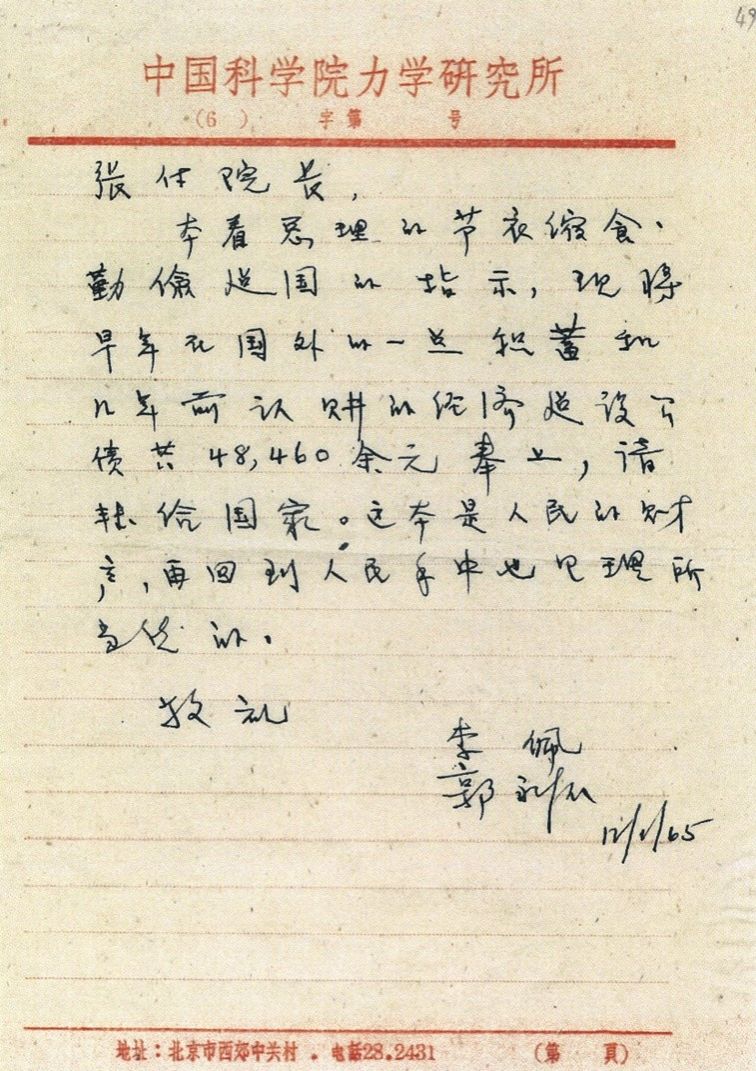 49
中国科学院力学研究所
(6 ) 字第 号
张付院长，
本着总理的节衣缩食、
勤俭造国的指示，现将
早年在国外的一点积蓄和
几年前认购的经济建设公
债共48,460余元奉上，请
转给国家。这本是人民的财
产，再回到人民手中也是理所
当然的。
敬礼
李佩
郭永怀
12/1/65
地址：北京市西郊中关村 . 电話28.2431 (第 頁)